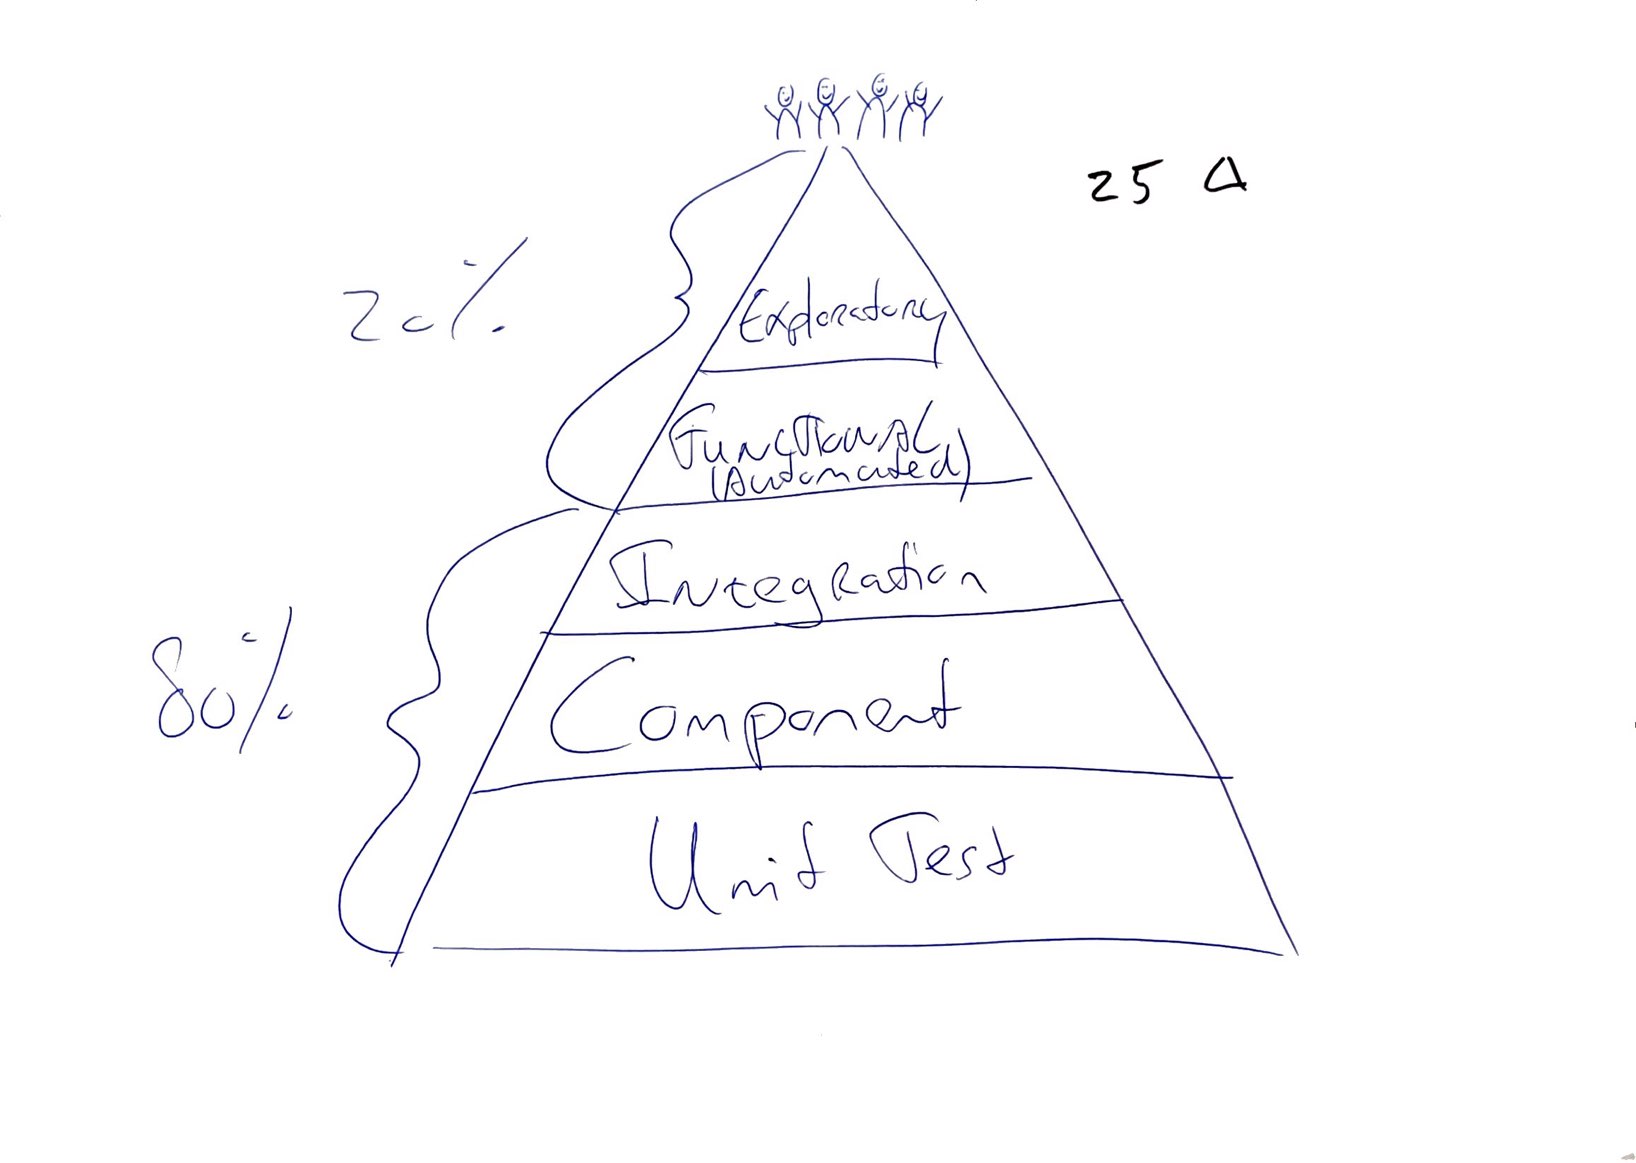 25 Δ
20%
Exploratory
Functional
(Automated)
Integration
80%
Component
Unit Test